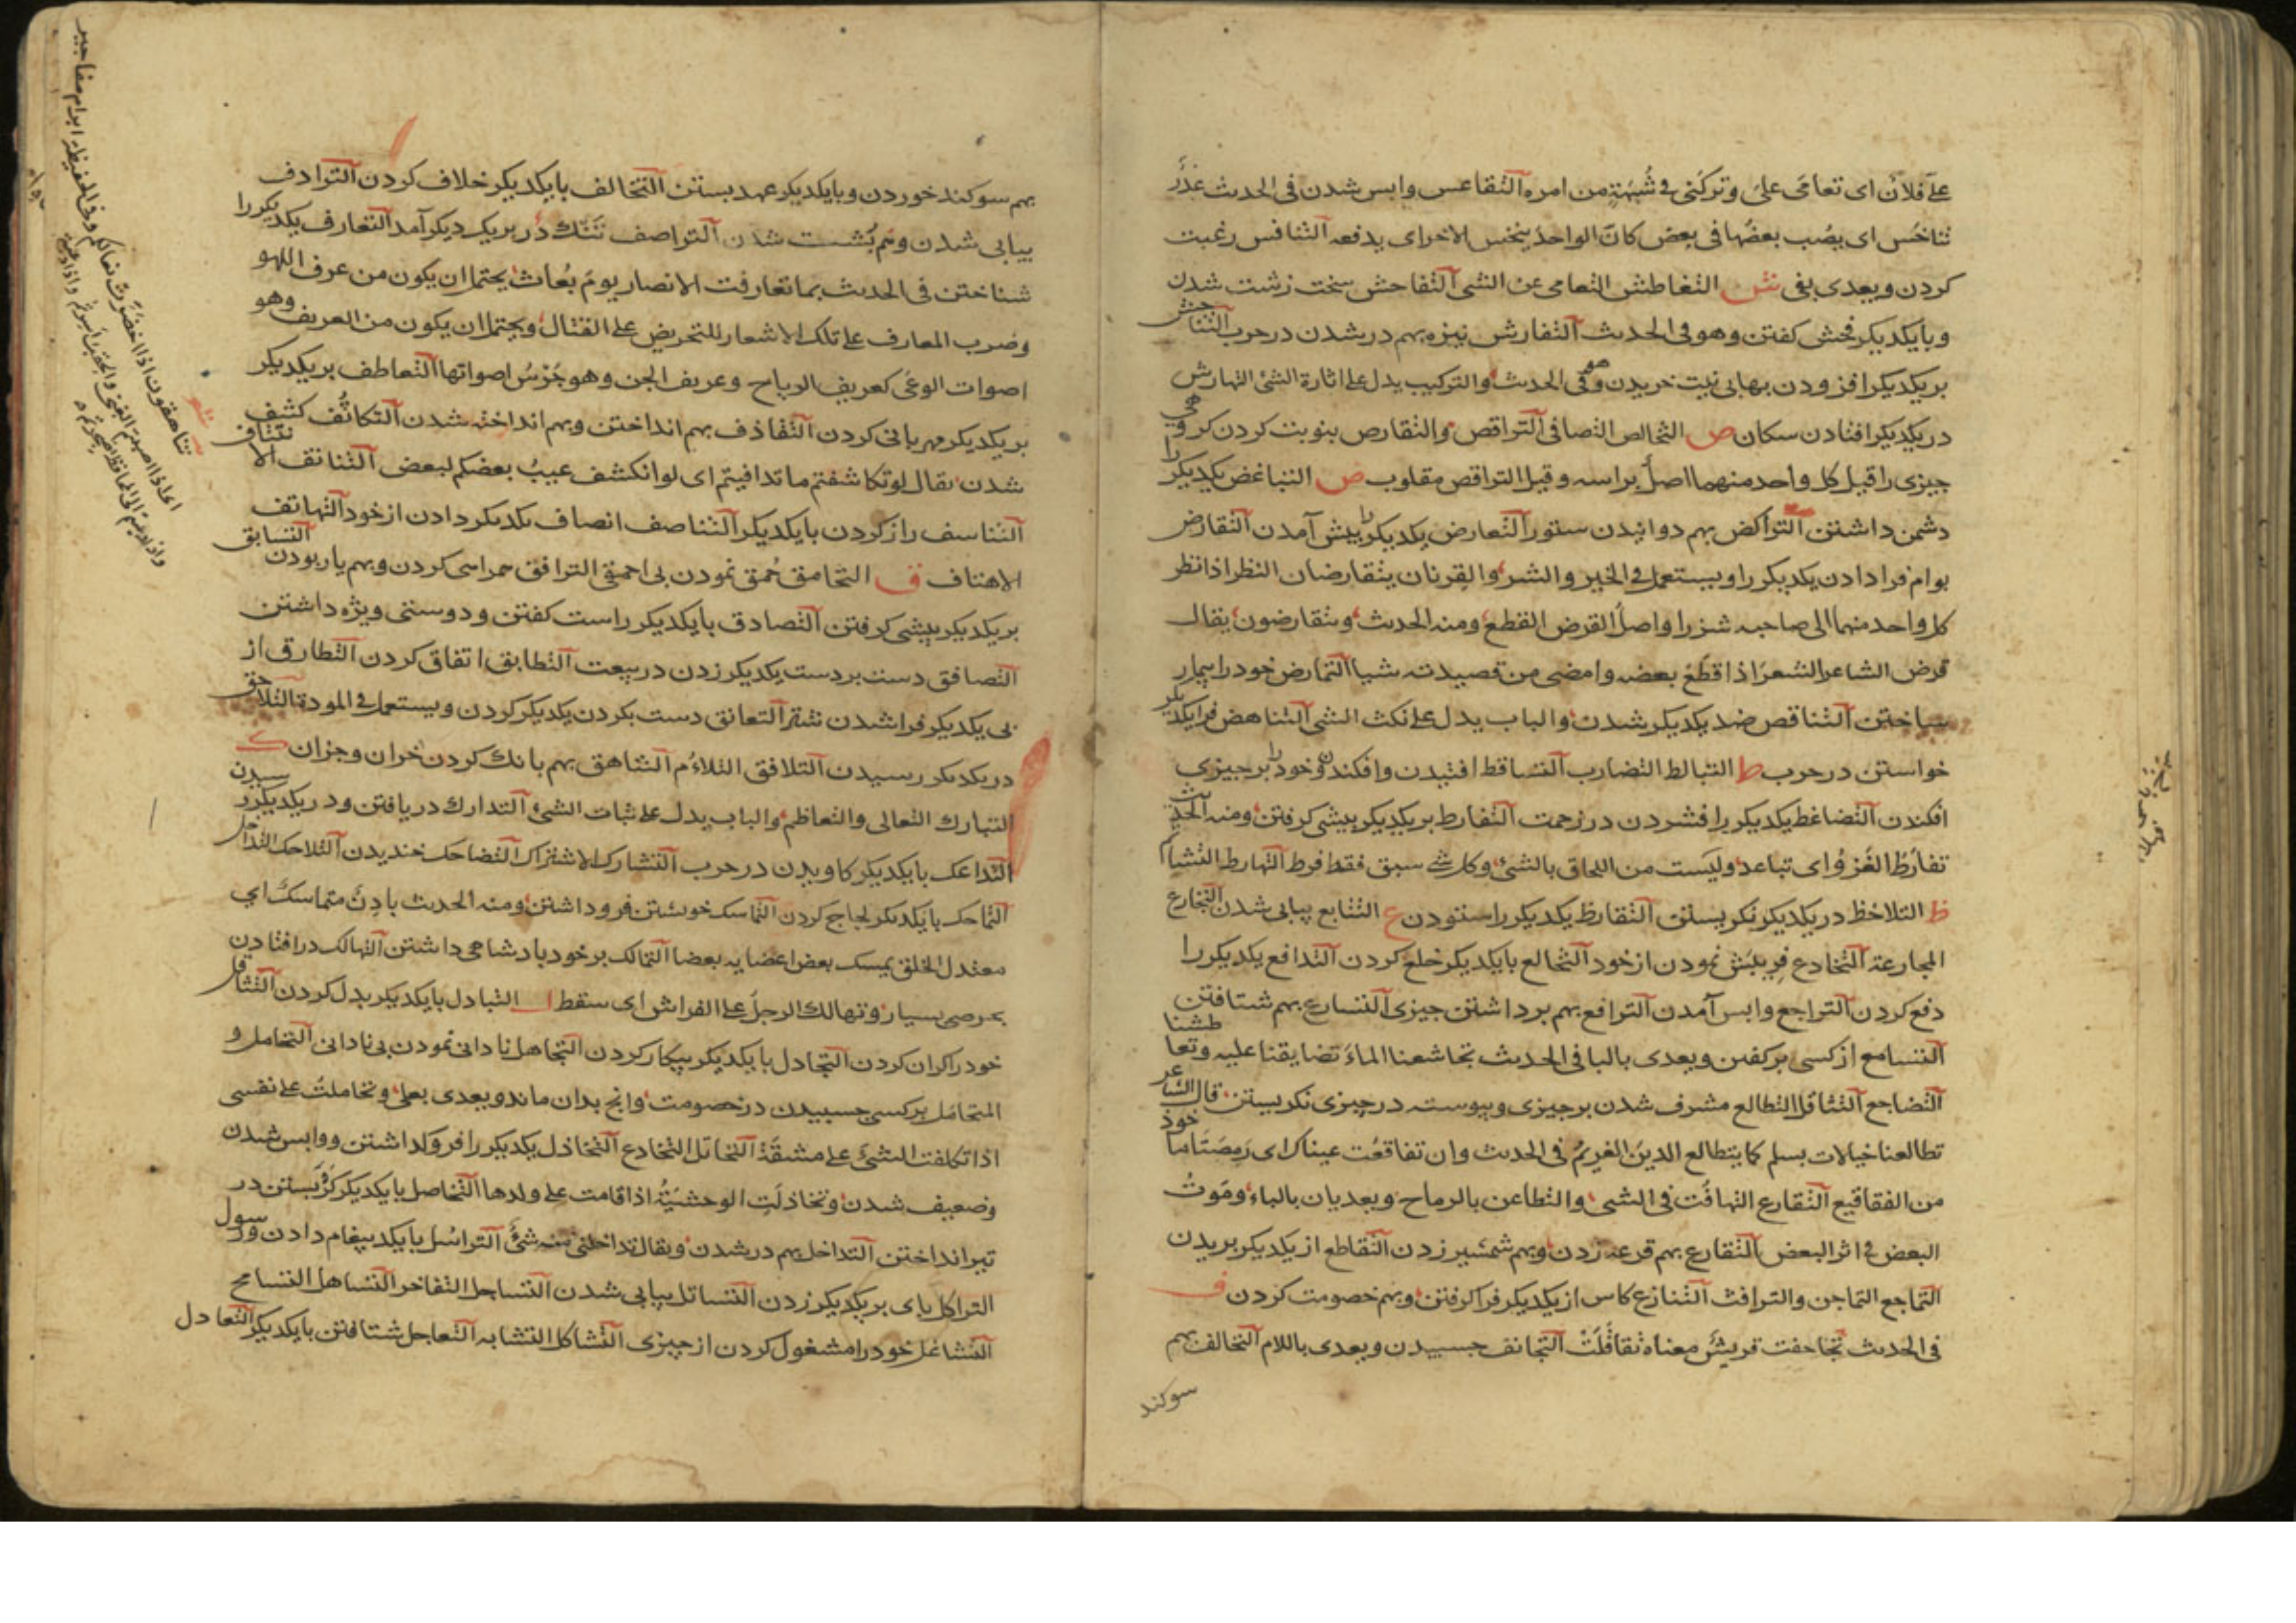 علی فلان ای تعامی علی و ترکنی فی شبهة من امره التقاعس واپس شدن فی الحدیث غدر
تناخس ای یصب بعضها فی بعض کان الواحد ینخس الاخر ای یدفعه التنافس رغبت
کردن ویعدی بفی ش التغاطش التعامی عن الشی التفاحش سخت زشت شدن
وبایکدیکر فحش کفتن وهو فی الحدیث التفارش نیزه بهم در شدن در حرب التناجش
بر یکدیکر افزودن بهابی نیت خریدن وهو فی الحدیث والترکیب یدل علی اثارة الشئ التهارش
در یکدیکر افتادن سکان ص التخالص التصافی التراقص والتقارص بنوبت کردن کروهی
چیزی را قیل کل واحد منهما اصل براسه وقیل التراقص مقلوب ض التباغض یکدیکر را
دشمن داشتن التراکض بهم دوانیدن ستور التعارض یکدیکر را پیش آمدن التقارض
بوام فرا دادن یکدیکر را ویستعمل فی الخیر والشر والقرنان یتقارضان النظر اذا نظر
کل واحد منهما الی صاحبه شزرا واصل القرض القطع ومنه الحدیث ویتقارضون یقال
قرض الشاعر الشعر اذا قطع بعضه وامضی من قصیدته شیا التمارض خود را بیمار
ساختن التناقص ضد یکدیکر شدن والباب یدل علی نکث الشی التناهض فرا یکدیکر
خواستن در حرب ط التبالط التضارب التساقط افتیدن وافکندن وخود را بر چیزی
افکندن التضاغط یکدیکر را فشردن در زحمت التفارط بر یکدیکر پیشی کرفتن ومنه الحدیث
تفارط الغزو ای تباعد ولیست من اللحاق بالشئ وکل شی سبق فقد فرط التهارط التشاتم
ظ التلاحظ در یکدیکر نکریستن التقارظ یکدیکر را ستودن ع التتابع پیاپی شدن التجارع
المجارعة التخادع فریبش نمودن از خود التخالع بایکدیکر خلع کردن التدافع یکدیکر را
دفع کردن التراجع واپس آمدن الترافع بهم برداشتن چیزی التسارع بهم شتافتن
التسامع از کسی بر کفتن ویعدی بالبا فی الحدیث تجاشعنا الماء تضایقنا علیه وتعاطشنا
التضاجع التثاقل التطالع مشرف شدن بر چیزی وپیوسته در چیزی نکریستن قال الشاعر
تطالعنا خیالات بسلم کما یتطالع الدین الغریم فی الحدیث وان تفاقعت عیناک ای رمصتا ماخوذ
من الفقاقیع التقارع التهافت فی الشی والتطاعن بالرماح ویعدیان بالباء وموت
البعض فی اثر البعض التقارع بهم قرعه زدن وبهم شمشیر زدن التقاطع از یکدیکر بریدن
التماجع التماجن والترافث التنازع کاس از یکدیکر فرا کرفتن وبهم خصومت کردن ف
فی الحدیث تجاحفت قریش معناه تقاتلت التجانف چسپیدن ویعدی باللام التخالف بهم
سوکند
بهم سوکند خوردن وبایکدیکر عهد بستن التخالف بایکدیکر خلاف کردن الترادف
پیاپی شدن وهم پشت شدن التراصف تنک در بر یکدیکر آمد التعارف یکدیکر را
شناختن فی الحدیث بما تعارفت الانصار یوم بعاث یحتمل ان یکون من عرف اللهو
وضرب المعارف علی تلک الاشعار للتحریض علی القتال ویحتمل ان یکون من العریف وهو
اصوات الوغی کعریف الریاح وعریف الجن وهو جرس اصواتها التعاطف بر یکدیکر
بر یکدیکر مهربانی کردن التقاذف بهم انداختن وبهم انداخته شدن التکاثف کشف
شدن یقال لو تکاشفتم ما تدافنتم ای لو انکشف عیب بعضکم لبعض التناتف الانتتاف
التناسف راز کردن بایکدیکر التناصف انصاف یکدیکر دادن از خود التهاتف
الاهتاف ق التحامق حمق نمودن بی احمقی الترافق همراهی کردن وبهم یار بودن التسابق
بر یکدیکر پیشی کرفتن التصادق بایکدیکر راست کفتن ودوستی ویژه داشتن
التصافق دست بر دست یکدیکر زدن در بیعت التطابق اتفاق کردن التطارق از
پی یکدیکر فرا شدن شتر التعانق دست بکردن یکدیکر کردن ویستعمل فی المودة التلاحق
در یکدیکر رسیدن التلافق التلاؤم التناهق بهم بانک کردن خران وجزان ک
التبارک التعالی والتعاظم والباب یدل علی ثبات الشئ التدارک دریافتن ودر یکدیکر رسیدن
التداعک بایکدیکر کاویدن در حرب التشارک الاشتراک التضاحک خندیدن التلاحک التداخل
التماحک بایکدیکر لجاج کردن التماسک خویشتن فرو داشتن ومنه الحدیث بادن متماسک ای
معتدل الخلق یمسک بعض اعضایه بعضا التمالک بر خود بادشاهی داشتن التهالک در افتادن
بحرصی بسیار وتهالک الرجل علی الفراش ای سقط ل التبادل بایکدیکر بدل کردن التثاقل
خود را کران کردن التجادل بایکدیکر پیکار کردن التجاهل نادانی نمودن بی نادانی التحامل و
المتحامل بر کسی چسپیدن در خصومت وانچ بدان ماند ویعدی بعلی وتحاملت علی نفسی
اذا تکلفت الشئ علی مشقة التخاتل التخادع التخاذل یکدیکر را فرو کذاشتن وواپس شدن
وضعیف شدن وتخاذلت الوحشیة اذا اقامت علی ولدها التخاصل بایکدیکر کرو بستن در
تیر انداختن التداخل بهم در شدن ویقال تداخلنی منه شئ التراسل بایکدیکر پیغام دادن ورسول
التراکل پای بر یکدیکر زدن التساتل پیاپی شدن التساجل التفاخر التساهل التسامح
التشاغل خود را مشغول کردن از چیزی التشاکل التشابه التعاجل شتافتن بایکدیکر التعادل